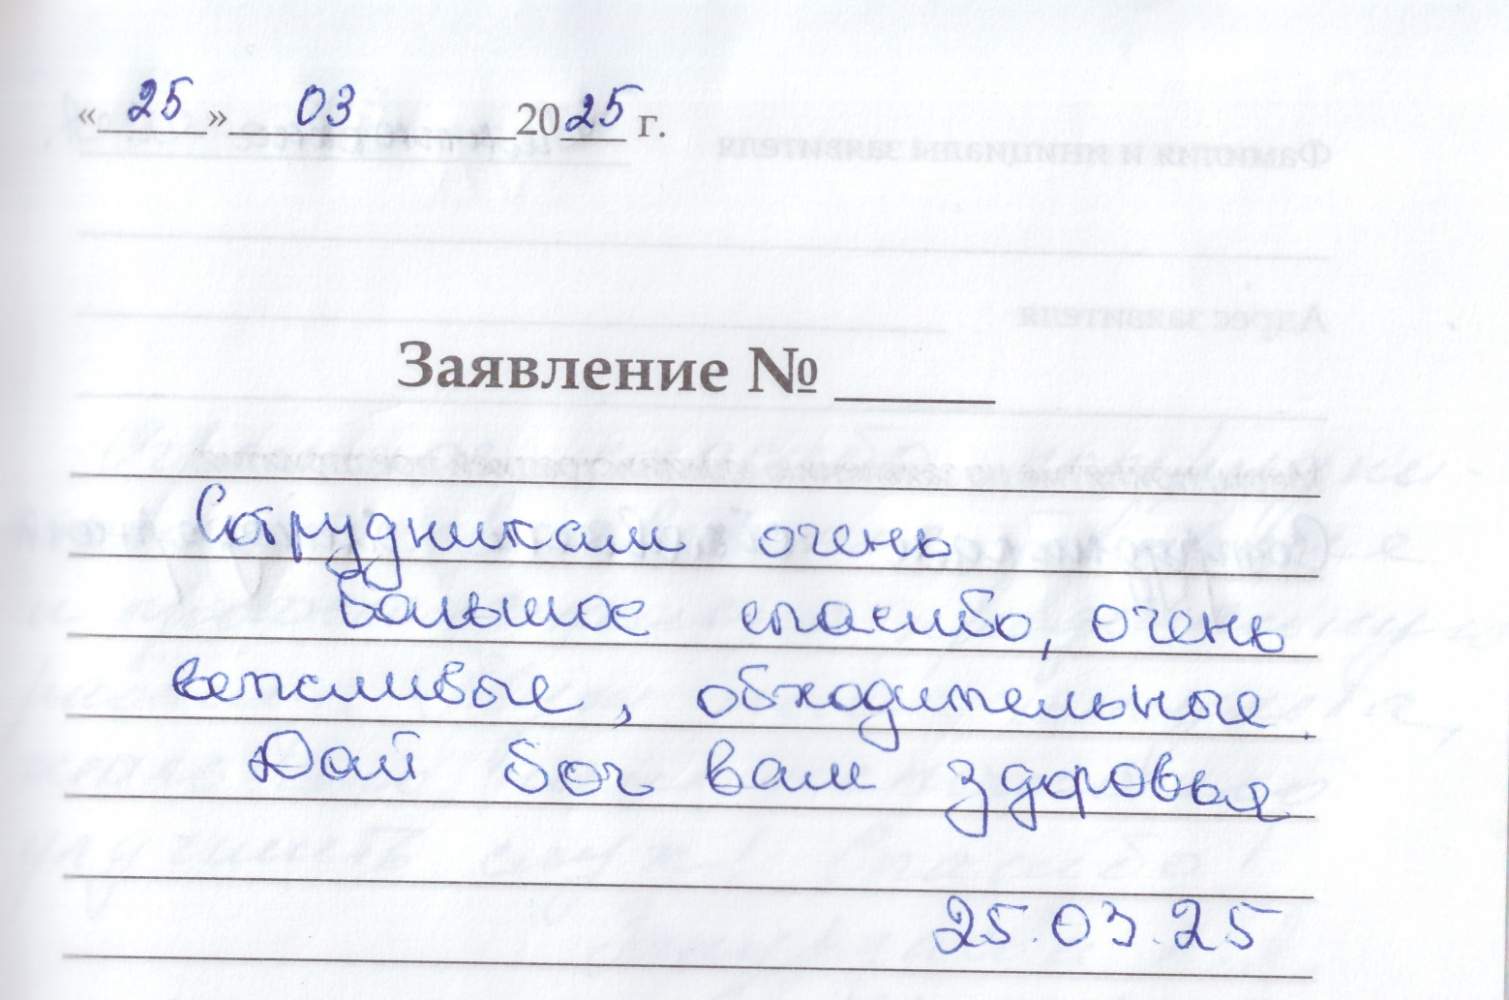 « 25 » 03 2025 г.
Заявление № ______
Сотрудникам очень
большое спасибо, очень
вежливые, обходительные.
Дай бог вам здоровья
25.03.25